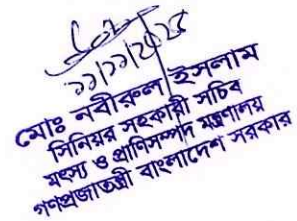 ২১/১১/২০২৫
মোঃ নবীরুল ইসলাম
সিনিয়র সহকারী সচিব
মৎস্য ও প্রাণিসম্পদ মন্ত্রণালয়
গণপ্রজাতন্ত্রী বাংলাদেশ সরকার